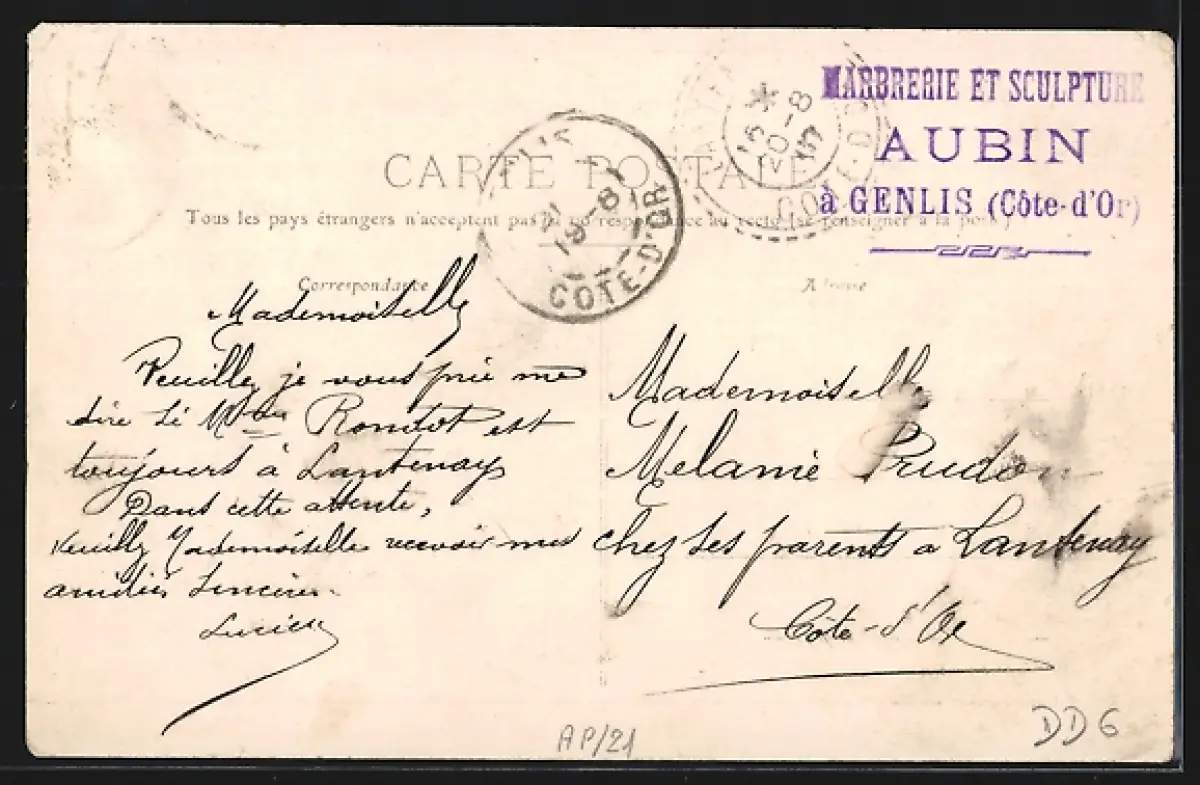 MARBRERIE ET SCULPTURE
AUBIN
à GENLIS (Côte-d'Or)
CARTE POSTALE
Tous les pays étrangers n'acceptent pas la correspondance au recto (se renseigner à la poste)
Correspondance
Adresse
LIS
19-8
COTE-D'OR
15
20-8
07
COTE-D'OR
Mademoiselle
Veuillez je vous prie me
dire si Mme Rondot est
toujours à Lantenay
Dans cette attente,
Veuillez Mademoiselle recevoir mes
amitiés sincères.
Lucien
Mademoiselle
Melanie Prudon
chez ses parents a Lantenay
Côte-d'Or
AP/21
DD6